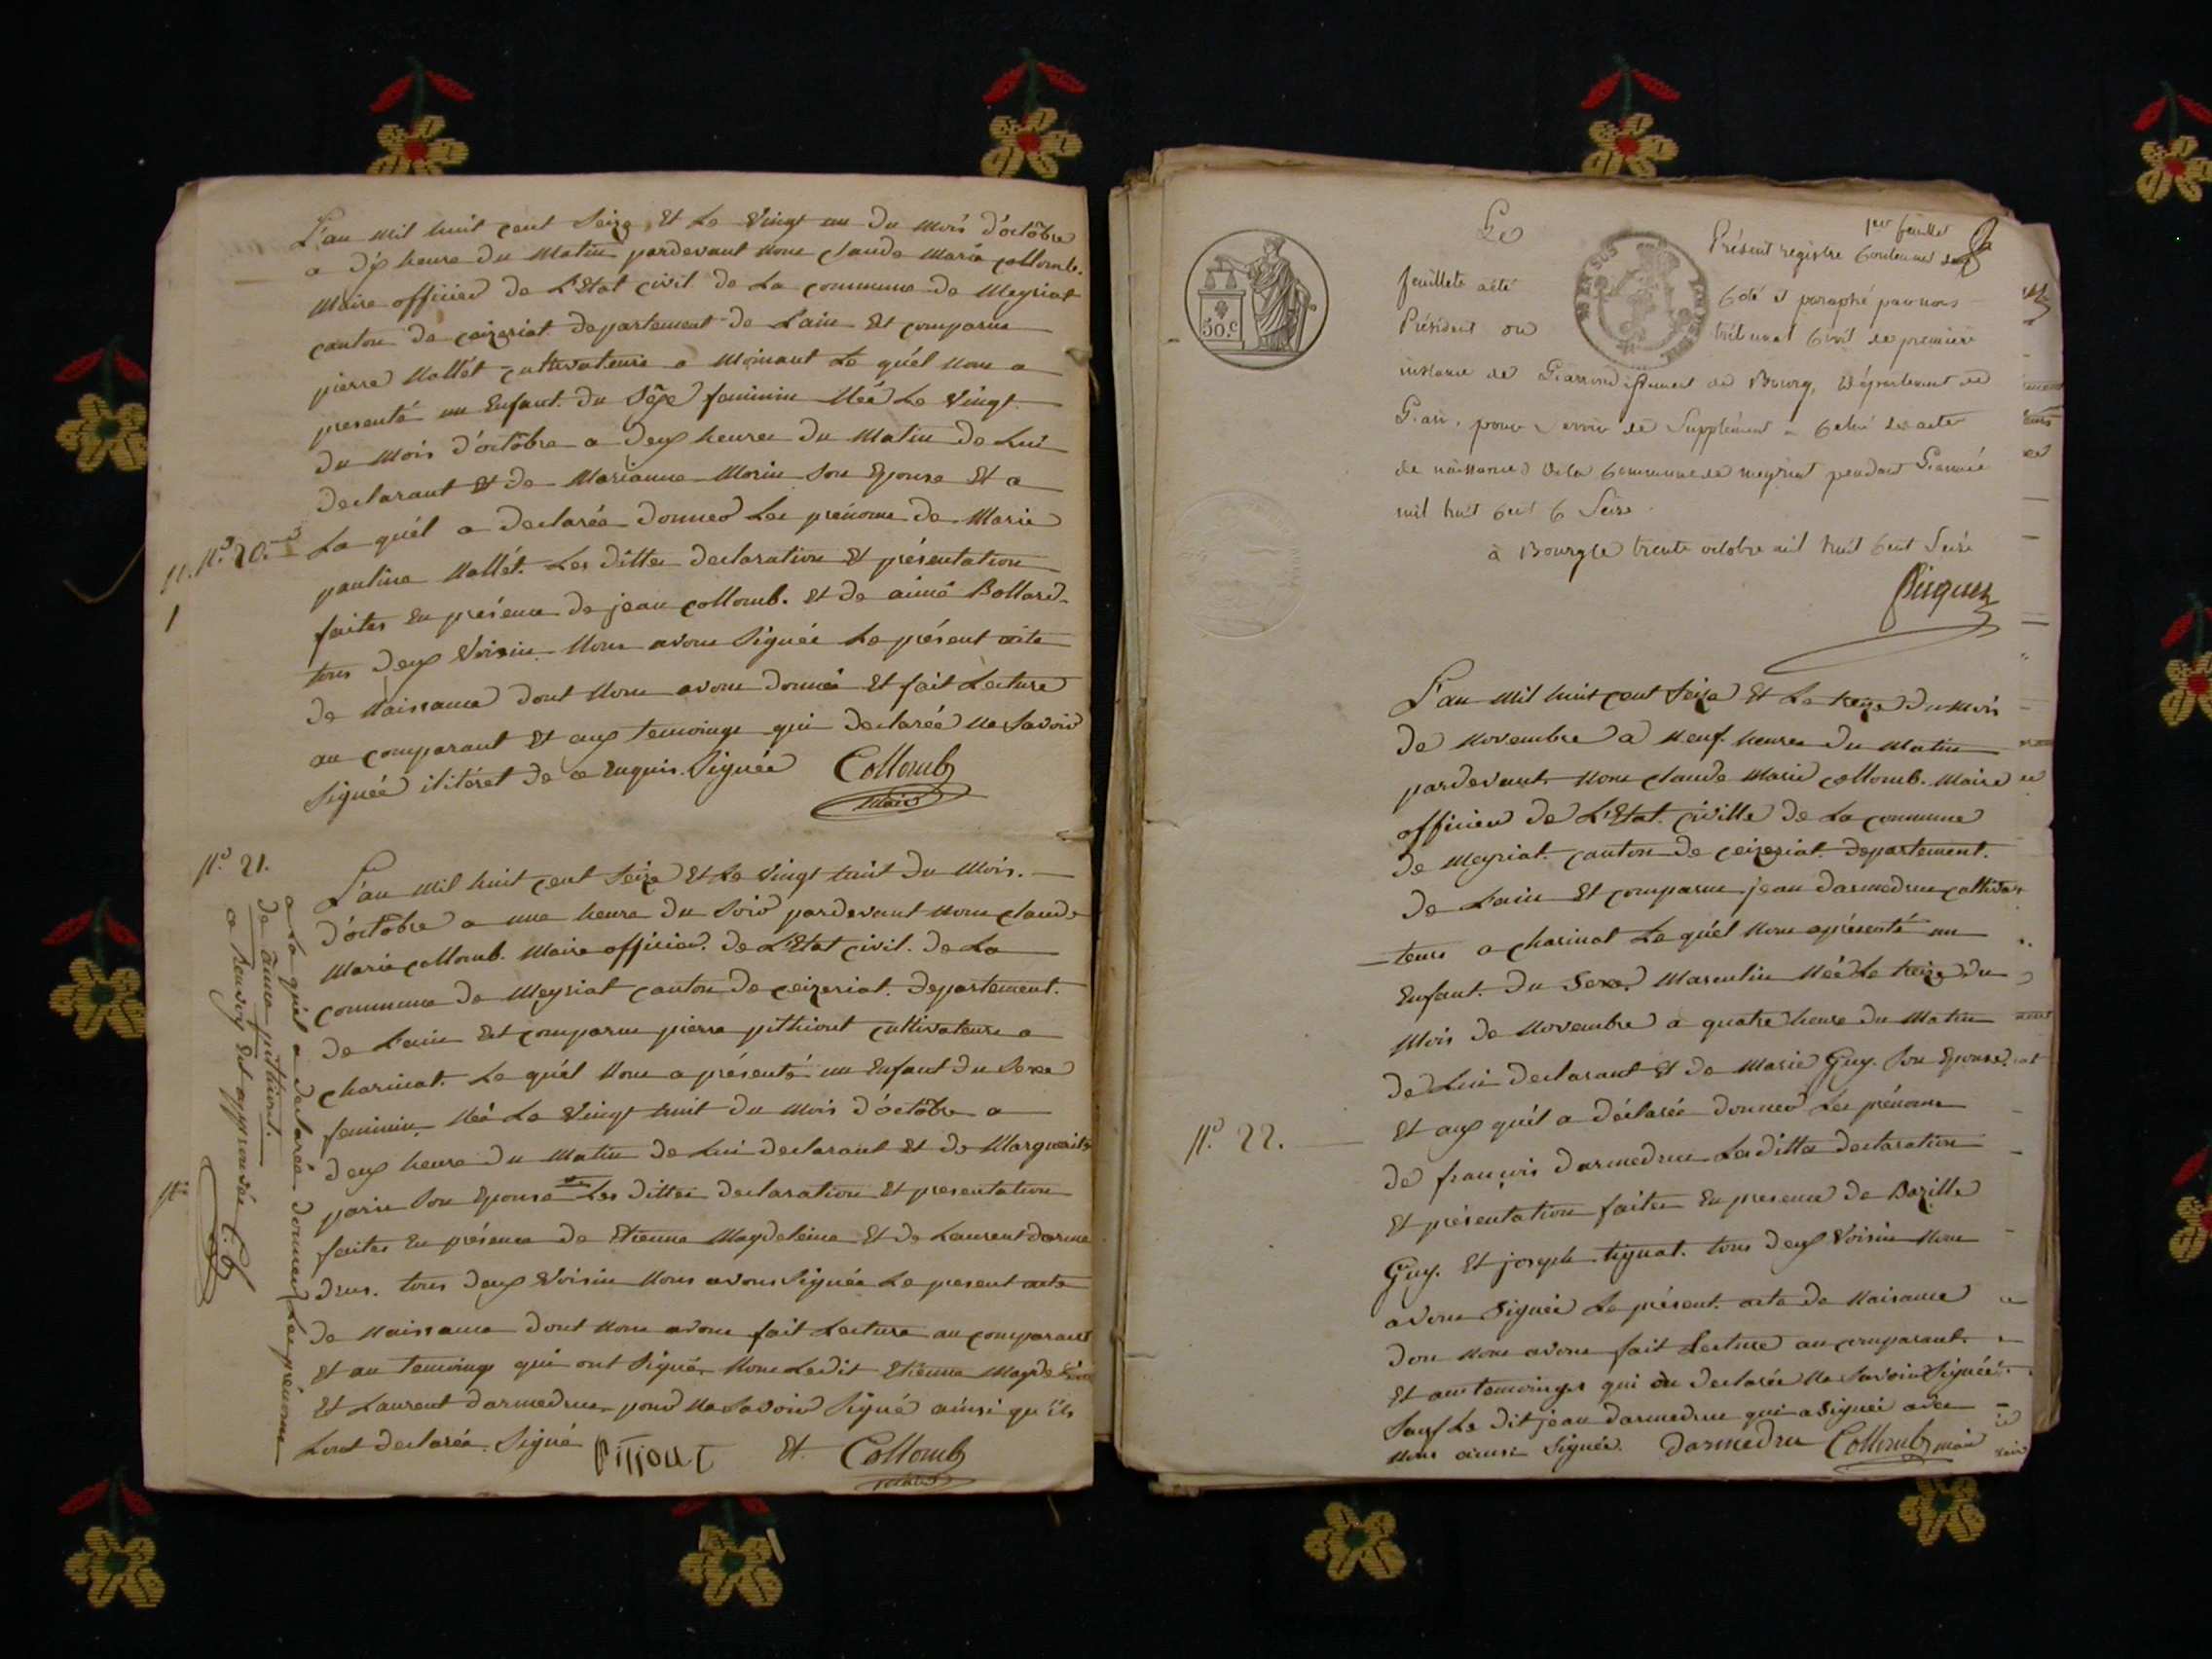 L'an mil huit cent Seize, Et Le Vingt un du Mois d'octôbre
a dix heure du Matin pardevant Nous claude Marie collomb.
Maire officier de L'Etat civil de La commune de Meyriat
canton de ceizeriat departement de Lain Et comparue
pierre Nallét cultivateure a Moinant Le quél Nous a
presenté un Enfant du Séxe feminin Néé Le Vingt
du Mois d'octôbre a deux heures du Matin de Lui
declarant Et de Marianne Morin Son Epouse Et a
N. N.º 20. La quél a declarée donner Les prénoms de Marie
1
pauline Nallét. Les dittes declaration Et présentation
faites En présence de jean collomb. Et de aimé Bollard
tous deux Voisin Nous avons Signée Le présent acte
de Naissance dont Nous avons donnée Et fait Lecture
au comparant Et aux temoings qui declaréé Ne Savoir
Signéé de ce Enquis. Signéé Collomb
Maire
N.º 21.
L'an mil huit cent Seize Et Le Vingt huit du Mois.
d'octôbre a une heure du Soir pardevant Nous claude
Marie collomb. Maire officier. de L'Etat civil. de La
commune de Meyriat canton de ceizeriat. departement.
de Lain Et comparue pierre pithiout cultivateure a
charinat. Le quél Nous a présenté un Enfant du Sexe
feminin Néé Le Vingt huit du Mois d'octôbre a
deux heure du Matin de Lui declarant Et de Marguerite
parin Son Epouse Les dittes declaration Et presentation
faites En présence de Etienne Magdeleine Et de Laurent darme
drus. tous deux Voisin Nous avons Signéé Le present acte
de Naissance dont Nous avons fait Lecture au comparant
Et au temoings qui ont Signé Nous Ledit Etienne Magdeleine
Et Laurent darmedrus pour Ne Savoir Signé ainsi qu'ils
Lont declaréé. Signé Pittiout Et. Collomb
Maire
a La quél a declaréé donner Les prénoms
de anne pithiout.
a Renvoy Est approuvée C. b
Le
1er feuillet
Présent registre Contenant
feuillets a été Coté et paraphé par nous
Président du tribunal Civil de première
instance de L'arrondissement de Bourg, Département de
L'ain, pour Servir de Supplément a Celui des actes
de naissances de la Commune de meyriat pendant L'année
mil huit Cent Seize.
à Bourg le trente octobre mil huit Cent Seize
50.C
L'an mil huit cent Seize Et Le treize du Mois
de Novembre a Neuf. heures du Matin
pardevant Nous claude Marie collomb. Maire
officier de L'Etat. civille de La commune
de Meyriat. canton de ceizeriat. departement.
de Lain Et comparue jean darmedrue cultiva
teure a charinat Le quél Nous a présenté un
Enfant. du Sexe. Masculin Néé Le treize du
Mois de Novembre a quatre heure du Matin
de Lui declarant Et de Marie Guy. Son Epouse.
Et aux quél a déclaréé donner Les prénoms
N.º 22.
de françois darmedrue Les dittes declaration
Et présentation faites En presence de Bazille
Guy. Et joseph tignat. tous deux Voisin Nous
avons Signée Le présent. acte de Naisance
don Nous avons fait Lecture au comparant.
Et aux temoings qui on declaréé Ne Savoir Signéé
Sauf Le dit jean darmedrue qui a Signéé avec
Nous ainsi Signéé. darmedru Collomb maire